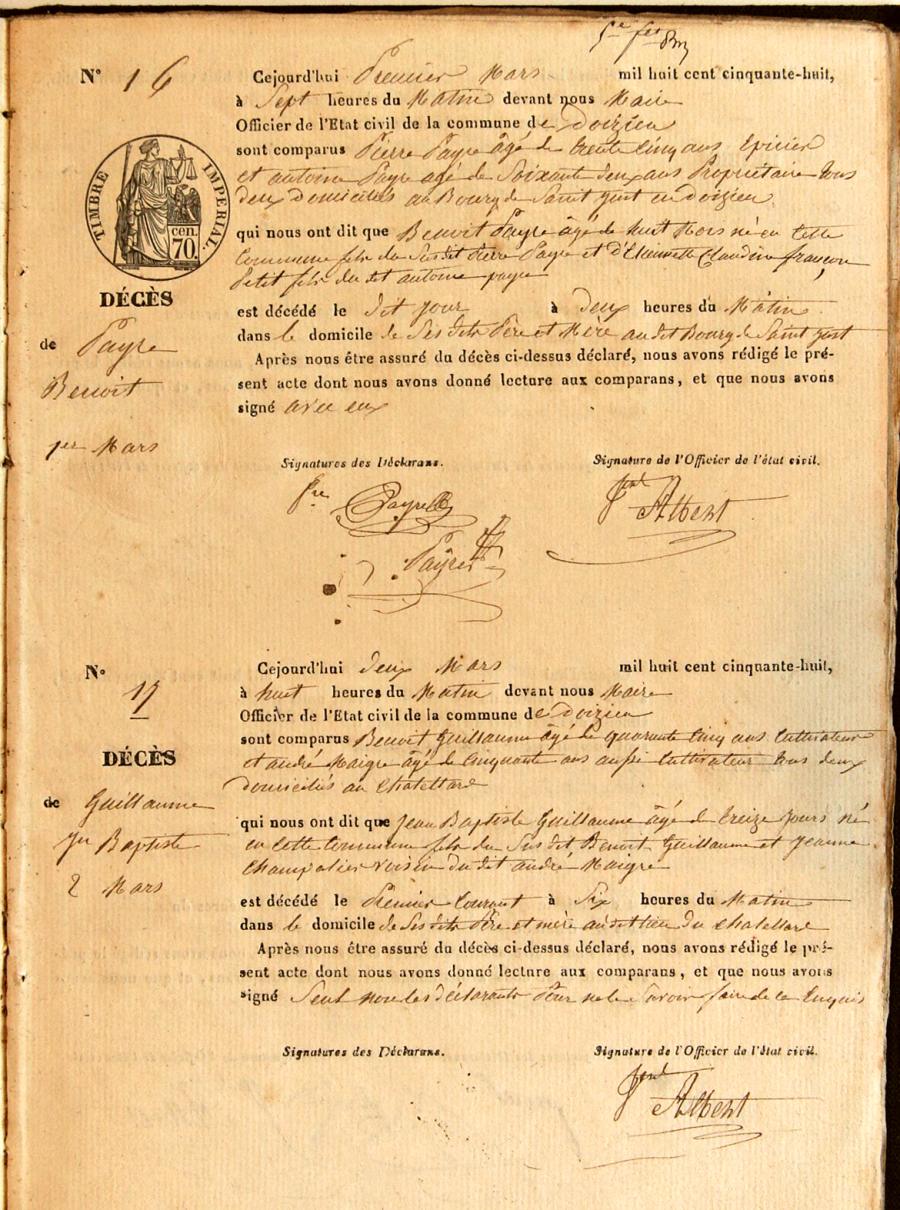 5e feet
N° 16
Cejourd'hui Premier Mars mil huit cent cinquante-huit,
à Sept heures du Matin devant nous Maire
Officier de l'Etat civil de la commune de doizieu
sont comparus Pierre Payre âgé de trente cinq ans Epicier
et antoine Payre agé de Soixante deux ans Propriétaire tous
deux domiciliés au Bourg de Saint just en doizieu
qui nous ont dit que Benoit Payre âgé de huit Mois né en cette
Commune fils du Susdit Pierre Payre et d'Etiennette Claudine françon
Petit fils du dit antoine payre
est décédé le dit jour à deux heures du Matin
dans le domicile de Ses dits Père et Mère au dit Bourg de Saint just
Après nous être assuré du décès ci-dessus déclaré, nous avons rédigé le pré-
sent acte dont nous avons donné lecture aux comparans, et que nous avons
signé avec eux
TIMBRE IMPERIAL
70. cen.
DÉCÈS
de Payre
Benoit
1er Mars
Signatures des Déclarans.
Signature de l'Officier de l'état civil.
Pre Payre
Payre
Albert
N° 17
Cejourd'hui deux Mars mil huit cent cinquante-huit,
à huit heures du Matin devant nous Maire
Officier de l'Etat civil de la commune de doizieu
sont comparus Benoit Guillaume âgé de quarante cinq ans Cultivateur
et andré Maigre âgé de Cinquante ans aussi Cultivateur tous deux
domiciliés au Chatellard
qui nous ont dit que Jean Baptiste Guillaume âgé de treize jours né
en cette Commune fils du Susdit Benoit Guillaume et Jeanne
Champalier voisin du dit andré Maigre
est décédé le Premier Courant à Six heures du Matin
dans le domicile de Ses dits Père et mère au dit lieu du Chatellard
Après nous être assuré du décès ci-dessus déclaré, nous avons rédigé le pré-
sent acte dont nous avons donné lecture aux comparans, et que nous avons
signé Seul non les déclarants Pour ne le Savoir faire de ce Enquis
DÉCÈS
de Guillaume
Jn Baptiste
2 Mars
Signatures des Déclarans.
Signature de l'Officier de l'état civil.
Albert